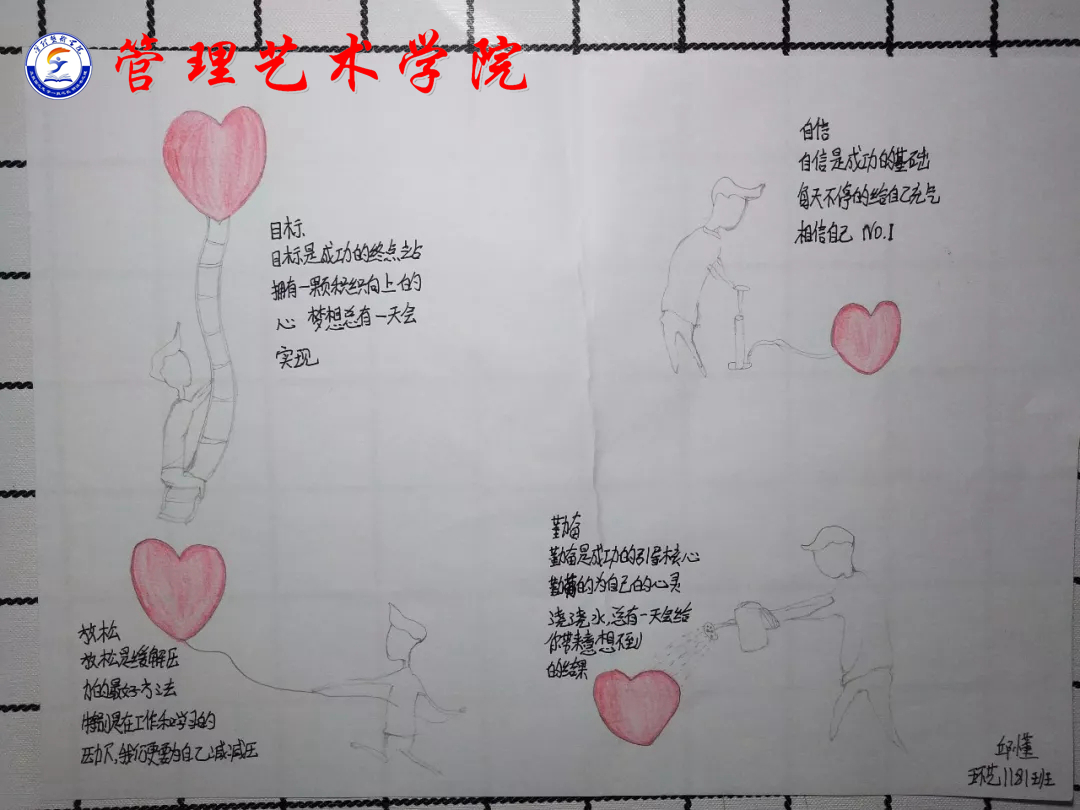 管理艺术学院
目标
目标是成功的终点站
拥有一颗积极向上的
心 梦想总有一天会
实现
自信
自信是成功的基础
每天不停的给自己充气
相信自己 NO.1
放松
放松是缓解压
力的最好方法
特别是在工作和学习的
压力下,我们更要为自己减减压
勤奋
勤奋是成功的引导核心
勤奋的为自己的心灵
浇浇水,总有一天会给
你带来意想不到
的结果
环艺1181班